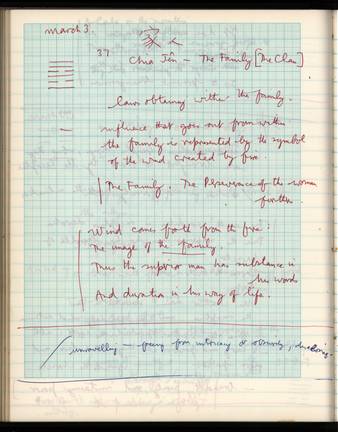 march 3.
家人
37
Chia Jên – The Family [The Clan]
laws obtaining within the family.
— influence that goes out from within
the family is represented by the symbol
of the wind created by fire.
The Family. The Perseverance of the woman
furthers.
Wind comes forth from the fire:
The image of the family.
Thus the superior man has substance in
his words
And duration in his way of life.
unravelling – freeing from intricacy or obscurity,